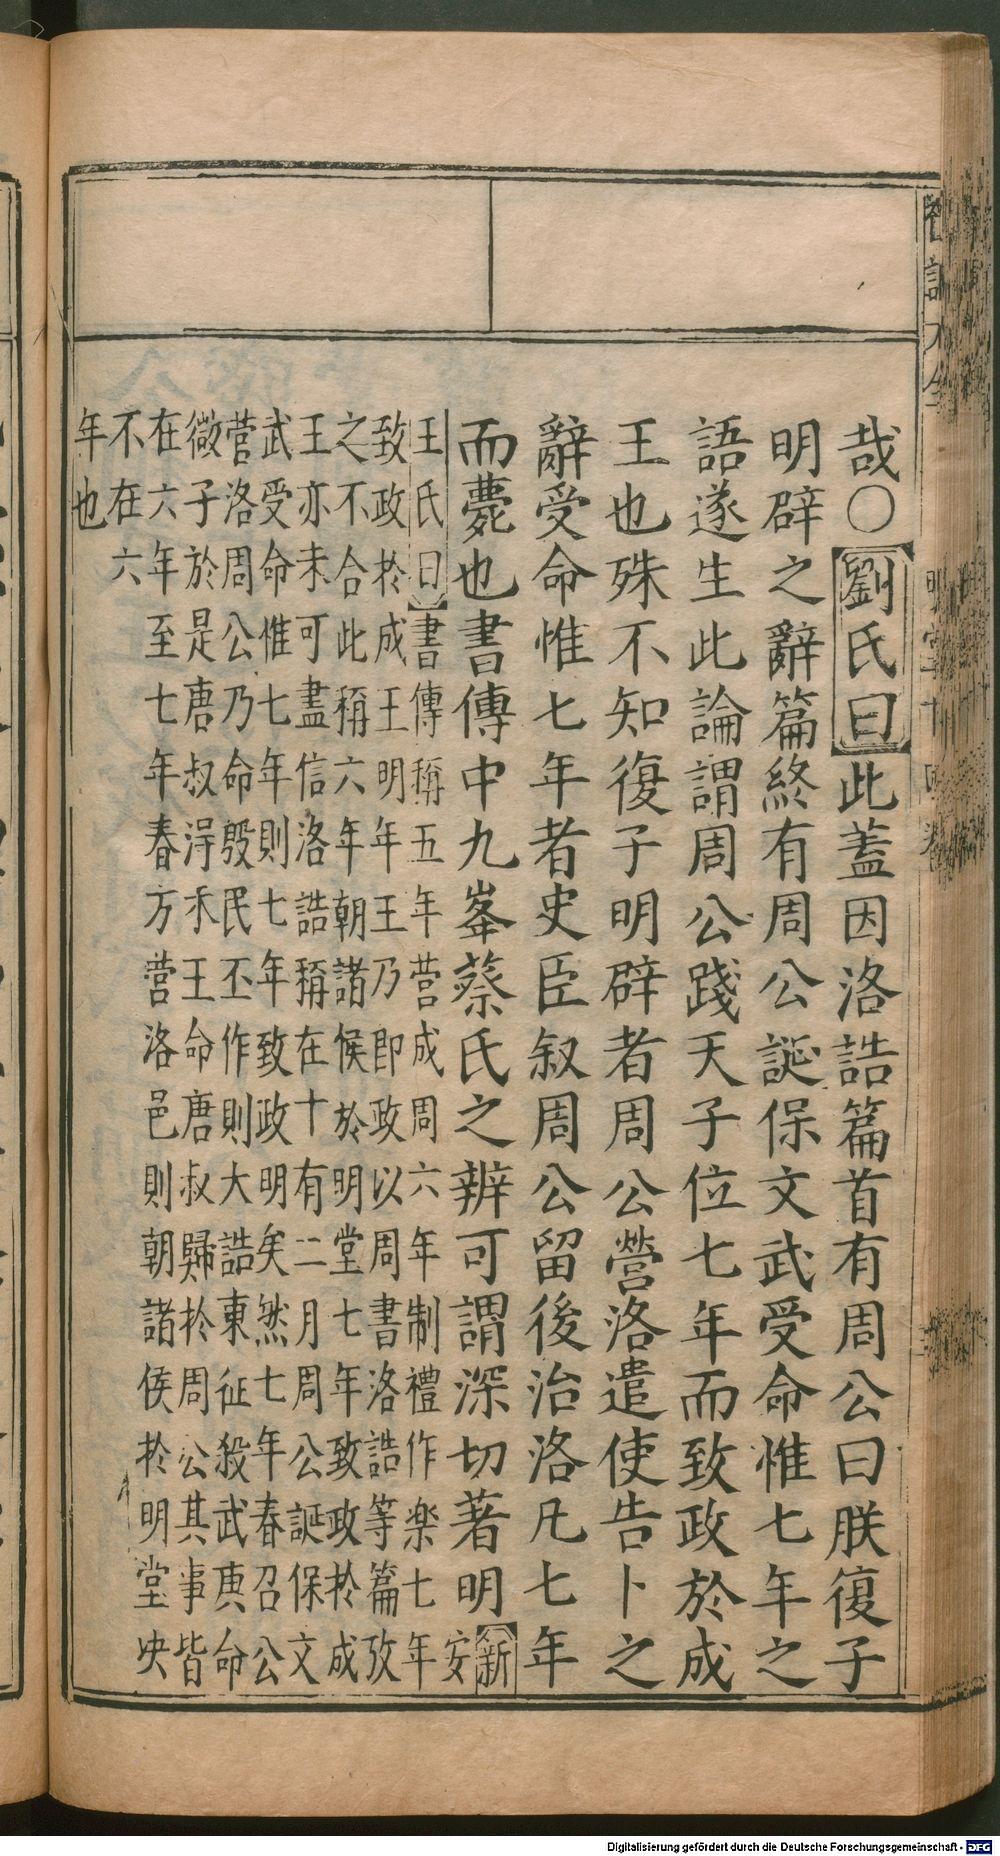 哉○劉氏曰此蓋因洛誥篇首有周公曰朕復子
明辟之辭篇終有周公誕保文武受命惟七年之
語遂生此論謂周公踐天子位七年而致政於成
王也殊不知復子明辟者周公營洛遣使告卜之
辭受命惟七年者史臣叙周公留後治洛凡七年
而薨也書傳中九峯蔡氏之辨可謂深切著明新安
王氏曰書傳稱五年營成周六年制禮作樂七年
致政於成王明年王乃即政以周書洛誥等篇攷
之不合此稱六年朝諸侯於明堂七年致政於成
王亦未可盡信洛誥稱在十有二月周公誕保文
武受命惟七年則七年致政明矣然七年春召公
營洛周公乃命殷民丕作則大誥東征殺武庚命
微子於是唐叔得禾王命唐叔歸於周公其事皆
在六年至七年春方營洛邑則朝諸侯於明堂央
不在六
年也
Digitalisierung gefördert durch die Deutsche Forschungsgemeinschaft - DFG